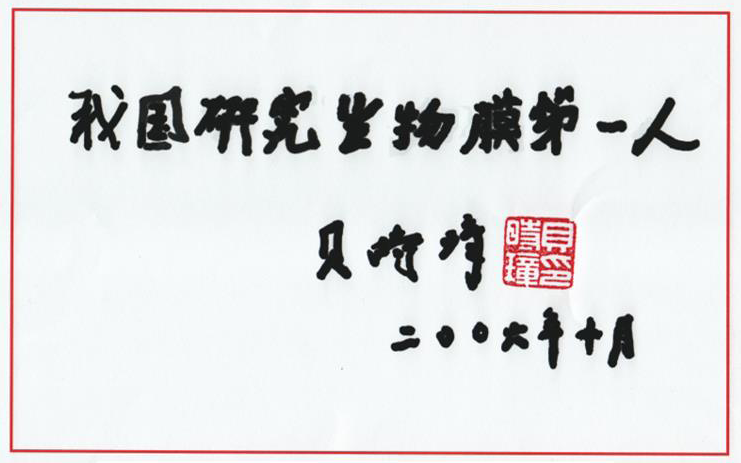 我国研究生物膜第一人
贝时璋
貝時璋印
二〇〇六年十月